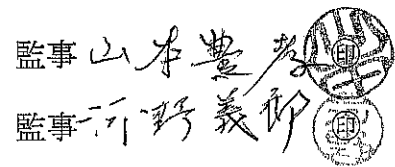 監事 山本豊彦 ㊞
監事 河野義郎 ㊞